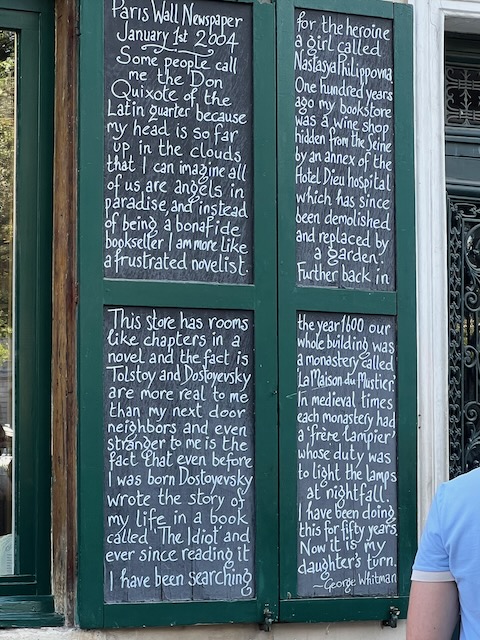 Paris Wall Newspaper
January 1st 2004
Some people call
me the Don
Quixote of the
Latin Quarter because
my head is so far
up in the clouds
that I can imagine all
of us are angels in
paradise and instead
of being a bonafide
bookseller I am more like
a frustrated novelist.
This store has rooms
like chapters in a
novel and the fact is
Tolstoy and Dostoyevsky
are more real to me
than my next door
neighbors and even
stranger to me is the
fact that even before
I was born Dostoyevsky
wrote the story of
my life in a book
called 'The Idiot' and
ever since reading it
I have been searching
for the heroine
a girl called
Nastasya Philippovna.
One hundred years
ago my bookstore
was a wine shop
hidden from the Seine
by an annex of the
Hotel Dieu hospital
which has since
been demolished
and replaced by
a garden.
Further back in
the year 1600 our
whole building was
a monastery called
'La Maison du Mustier.'
In medieval times
each monastery had
a 'frère lampier'
whose duty was
to light the lamps
at nightfall.
I have been doing
this for fifty years.
Now it is my
daughter's turn.
—George Whitman